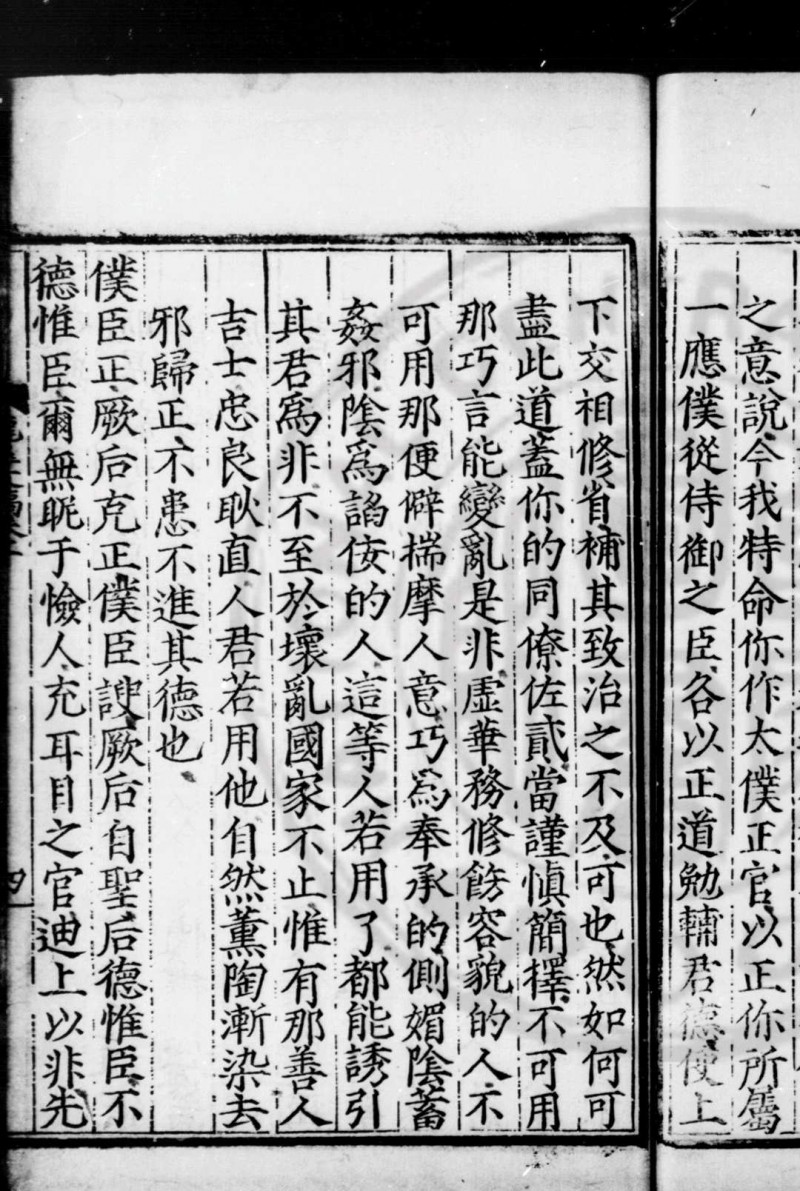 之意說今我特命你作太僕正官以正你所屬
一應僕從侍御之臣各以正道勉輔君德使上
下交相修省補其致治之不及可也然如何可
盡此道蓋你的同僚佐貳當謹慎簡擇不可用
那巧言能變亂是非虛華務修飭容貌的人不
可用那便僻揣摩人意巧為奉承的側媚陰蓄
姦邪陰為諂佞的人這等人若用了都能誘引
其君為非不至於壞亂國家不止惟有那善人
吉士忠良耿直人君若用他自然薰陶漸染去
邪歸正不患不進其德也
僕臣正厥后克正僕臣諛厥后自聖后德惟臣不
德惟臣爾無昵于憸人充耳目之官迪上以非先
四